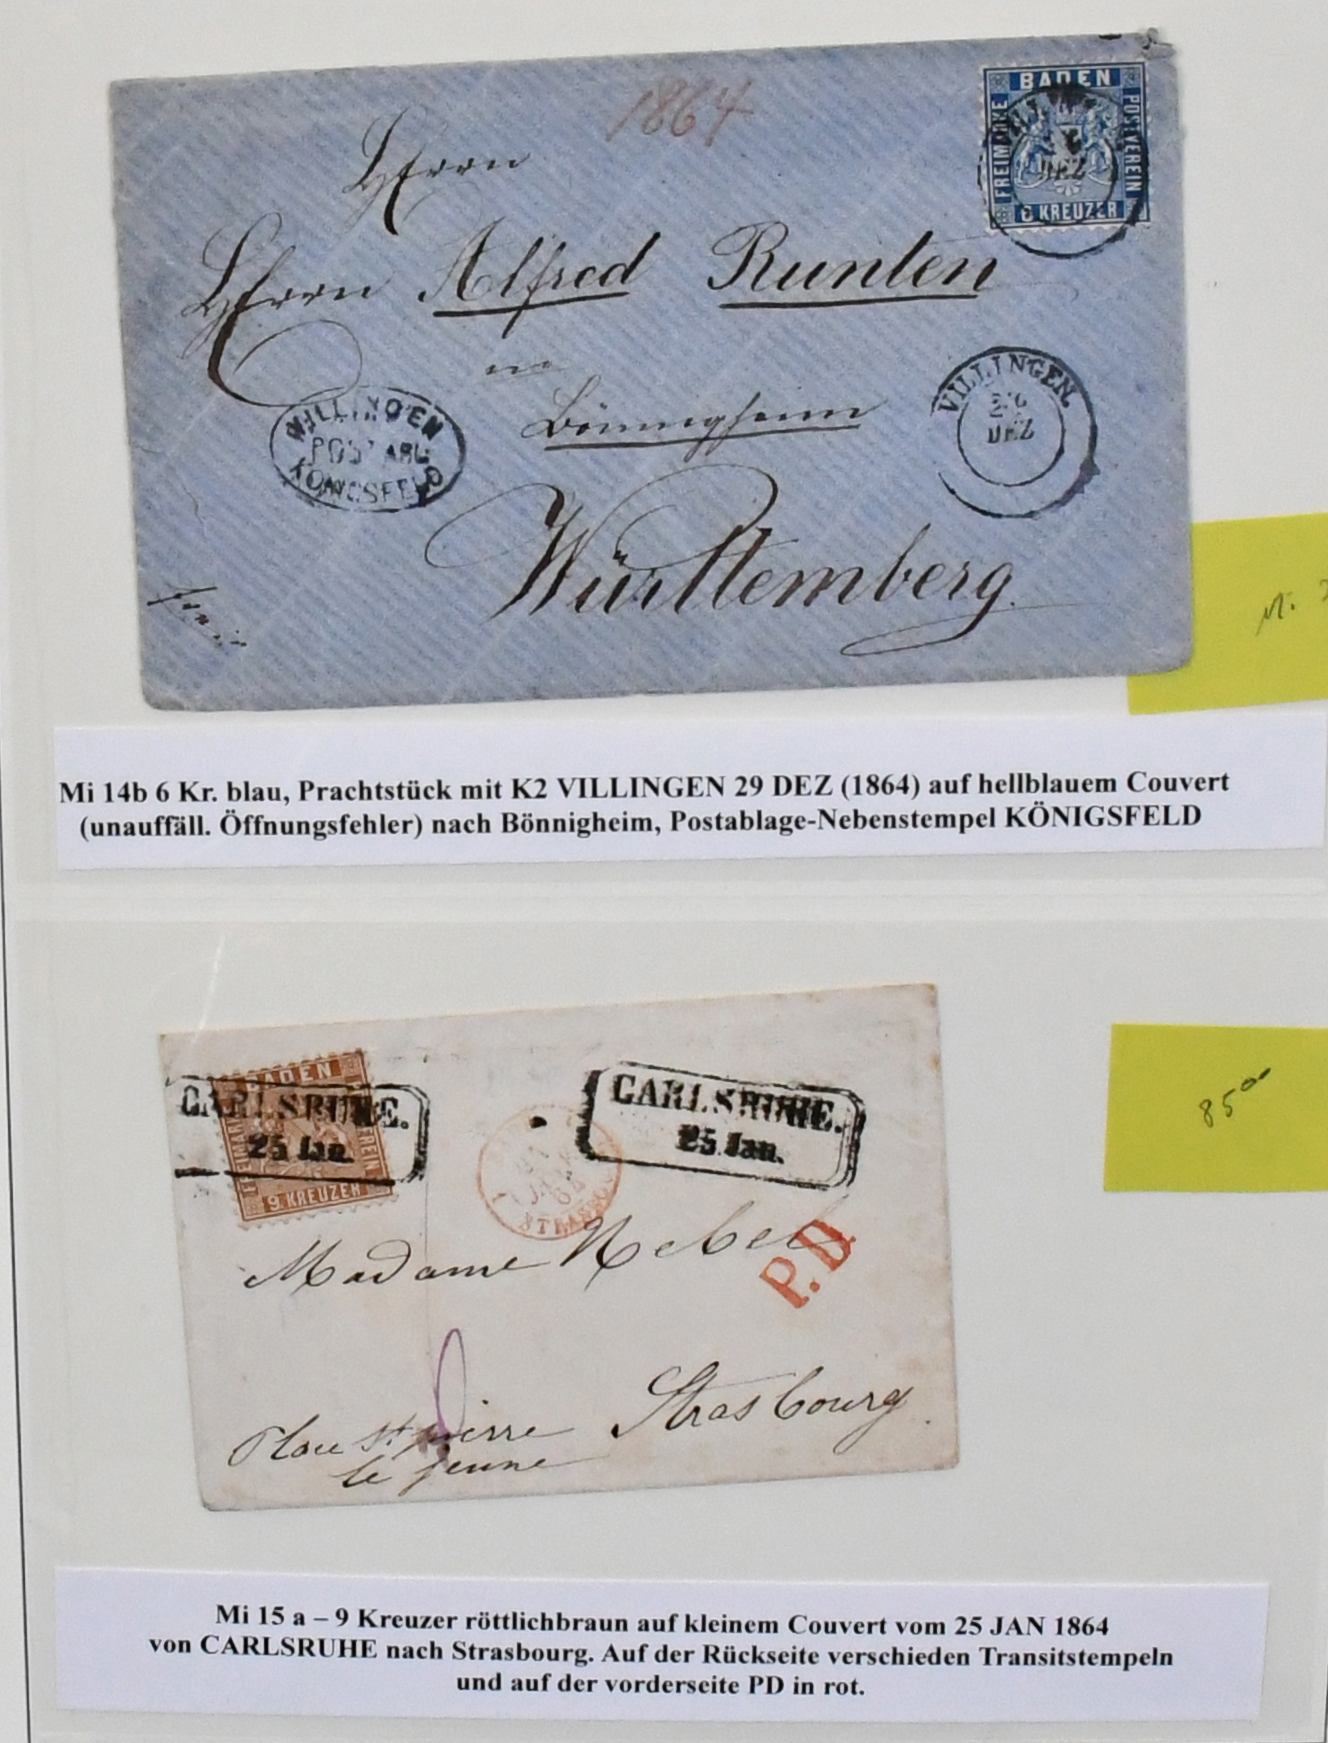 1864
BADEN
FREIMARKE
POSTVEREIN
6 KREUZER
DEZ
Herrn
Herrn Alfred Runten
in
Bönnigheim
Württemberg
VILLINGEN
DEZ
VILLINGEN
POSTABL
KÖNIGSFELD
Mi 14b 6 Kr. blau, Prachtstück mit K2 VILLINGEN 29 DEZ (1864) auf hellblauem Couvert
(unauffäll. Öffnungsfehler) nach Bönnigheim, Postablage-Nebenstempel KÖNIGSFELD
BADEN
FREIMARKE
9 KREUZER
CARLSRUHE.
25 Jan.
CARLSRUHE.
25 Jan.
STRASBOURG
P.D.
85 00
Madame Nebel
Strasbourg
Place St pierre
le jeune
Mi 15 a – 9 Kreuzer röttlichbraun auf kleinem Couvert vom 25 JAN 1864
von CARLSRUHE nach Strasbourg. Auf der Rückseite verschieden Transitstempeln
und auf der vorderseite PD in rot.